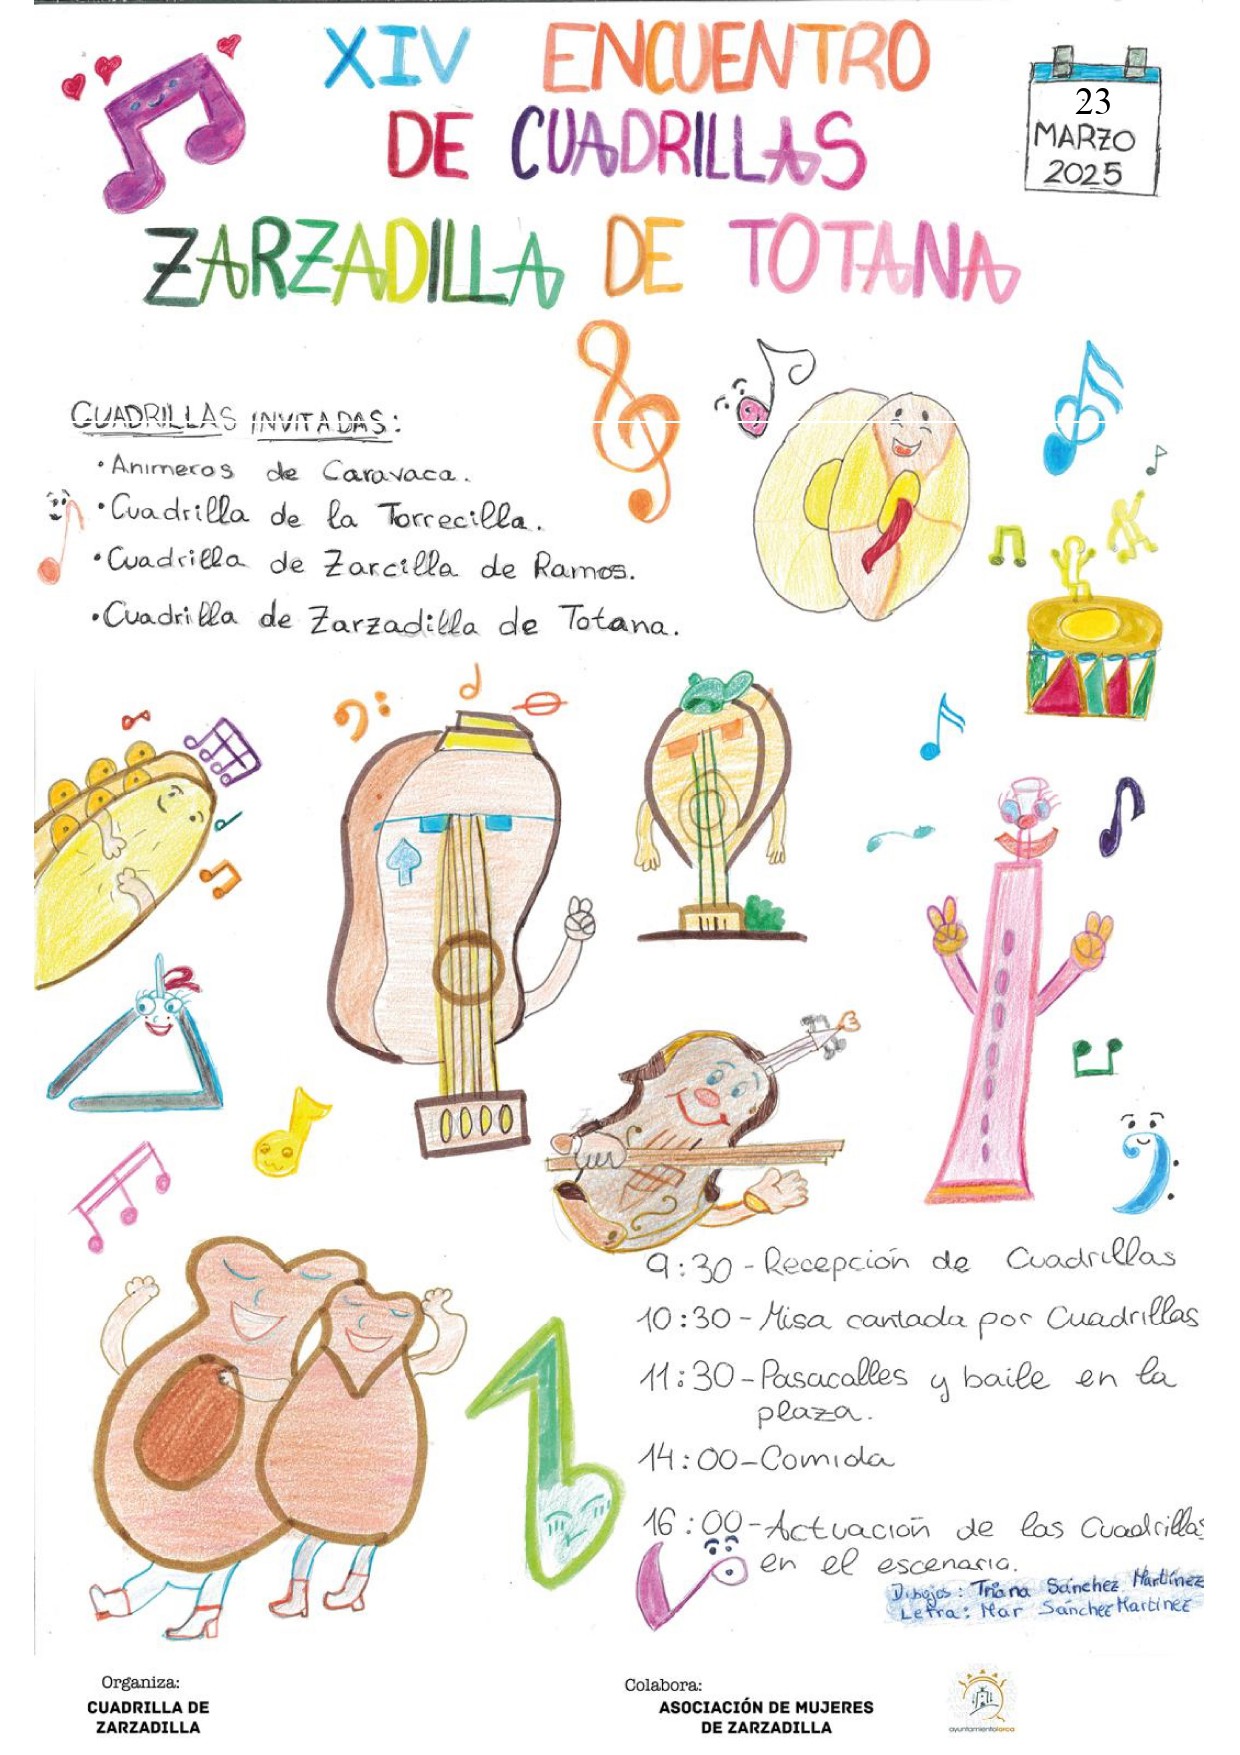 XIV ENCUENTRO
DE CUADRILLAS
ZARZADILLA DE TOTANA
23
MARZO
2025
CUADRILLAS INVITADAS:
• Animeros de Caravaca.
• Cuadrilla de la Torrecilla.
• Cuadrilla de Zarcilla de Ramos.
• Cuadrilla de Zarzadilla de Totana.
9:30 - Recepción de Cuadrillas
10:30 - Misa cantada por Cuadrillas
11:30 - Pasacalles y baile en la
plaza.
14:00 - Comida
16:00 - Actuación de las Cuadrillas
en el escenario.
Dibujos: Triana Sánchez Martínez
Letra: Mar Sánchez Martínez
Organiza:
CUADRILLA DE
ZARZADILLA
Colabora:
ASOCIACIÓN DE MUJERES
DE ZARZADILLA
ayuntamientolorca